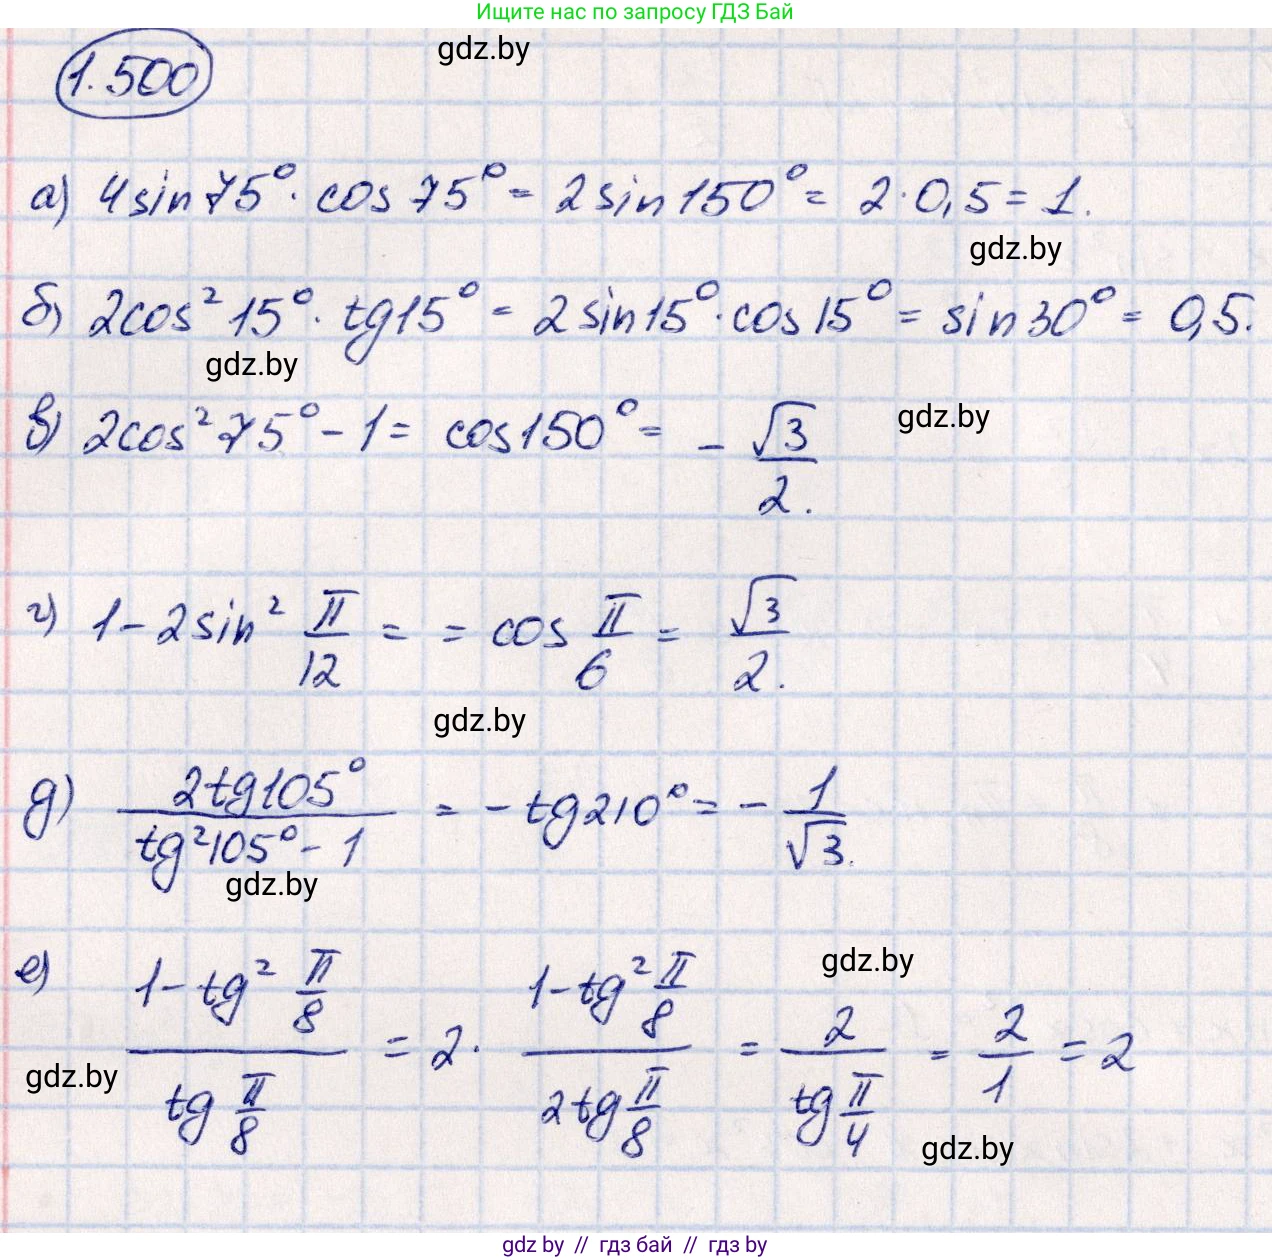 Ищите нас по запросу ГДЗ Бай
gdz.by
1.500
а) 4sin75°·cos75° = 2sin150° = 2·0,5 = 1.
gdz.by
б) 2cos²15°·tg15° = 2sin15°·cos15° = sin30° = 0,5.
gdz.by
в) 2cos²75° - 1 = cos150° = - √3/2.
gdz.by
г) 1 - 2sin² π/12 = = cos π/6 = √3/2.
gdz.by
д) 2tg105° / tg²105° - 1 = - tg210° = - 1/√3.
gdz.by
е) 1 - tg² π/8 / tg π/8 = 2· 1 - tg² π/8 / 2tg π/8 = 2 / tg π/4 = 2/1 = 2
gdz.by
gdz.by
gdz.by
gdz.by // гдз бай // gdz.by